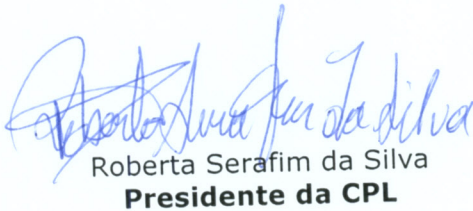 Roberta Serafim da Silva
Roberta Serafim da Silva
Presidente da CPL